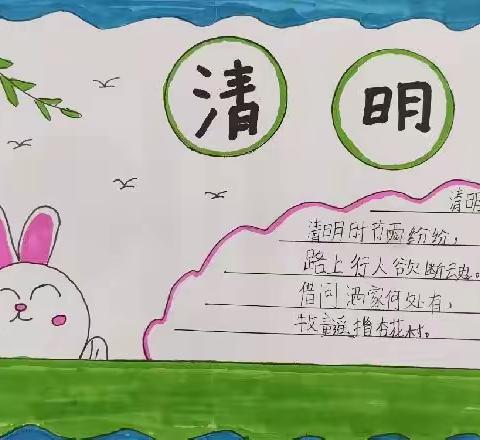 清明
清明
清明时节雨纷纷，
路上行人欲断魂。
借问酒家何处有，
牧童遥指杏花村。